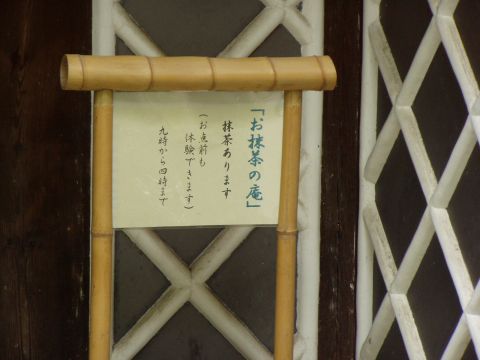 「お抹茶の庵」
抹茶あります
（お点前も
体験できます）
九時から四時まで